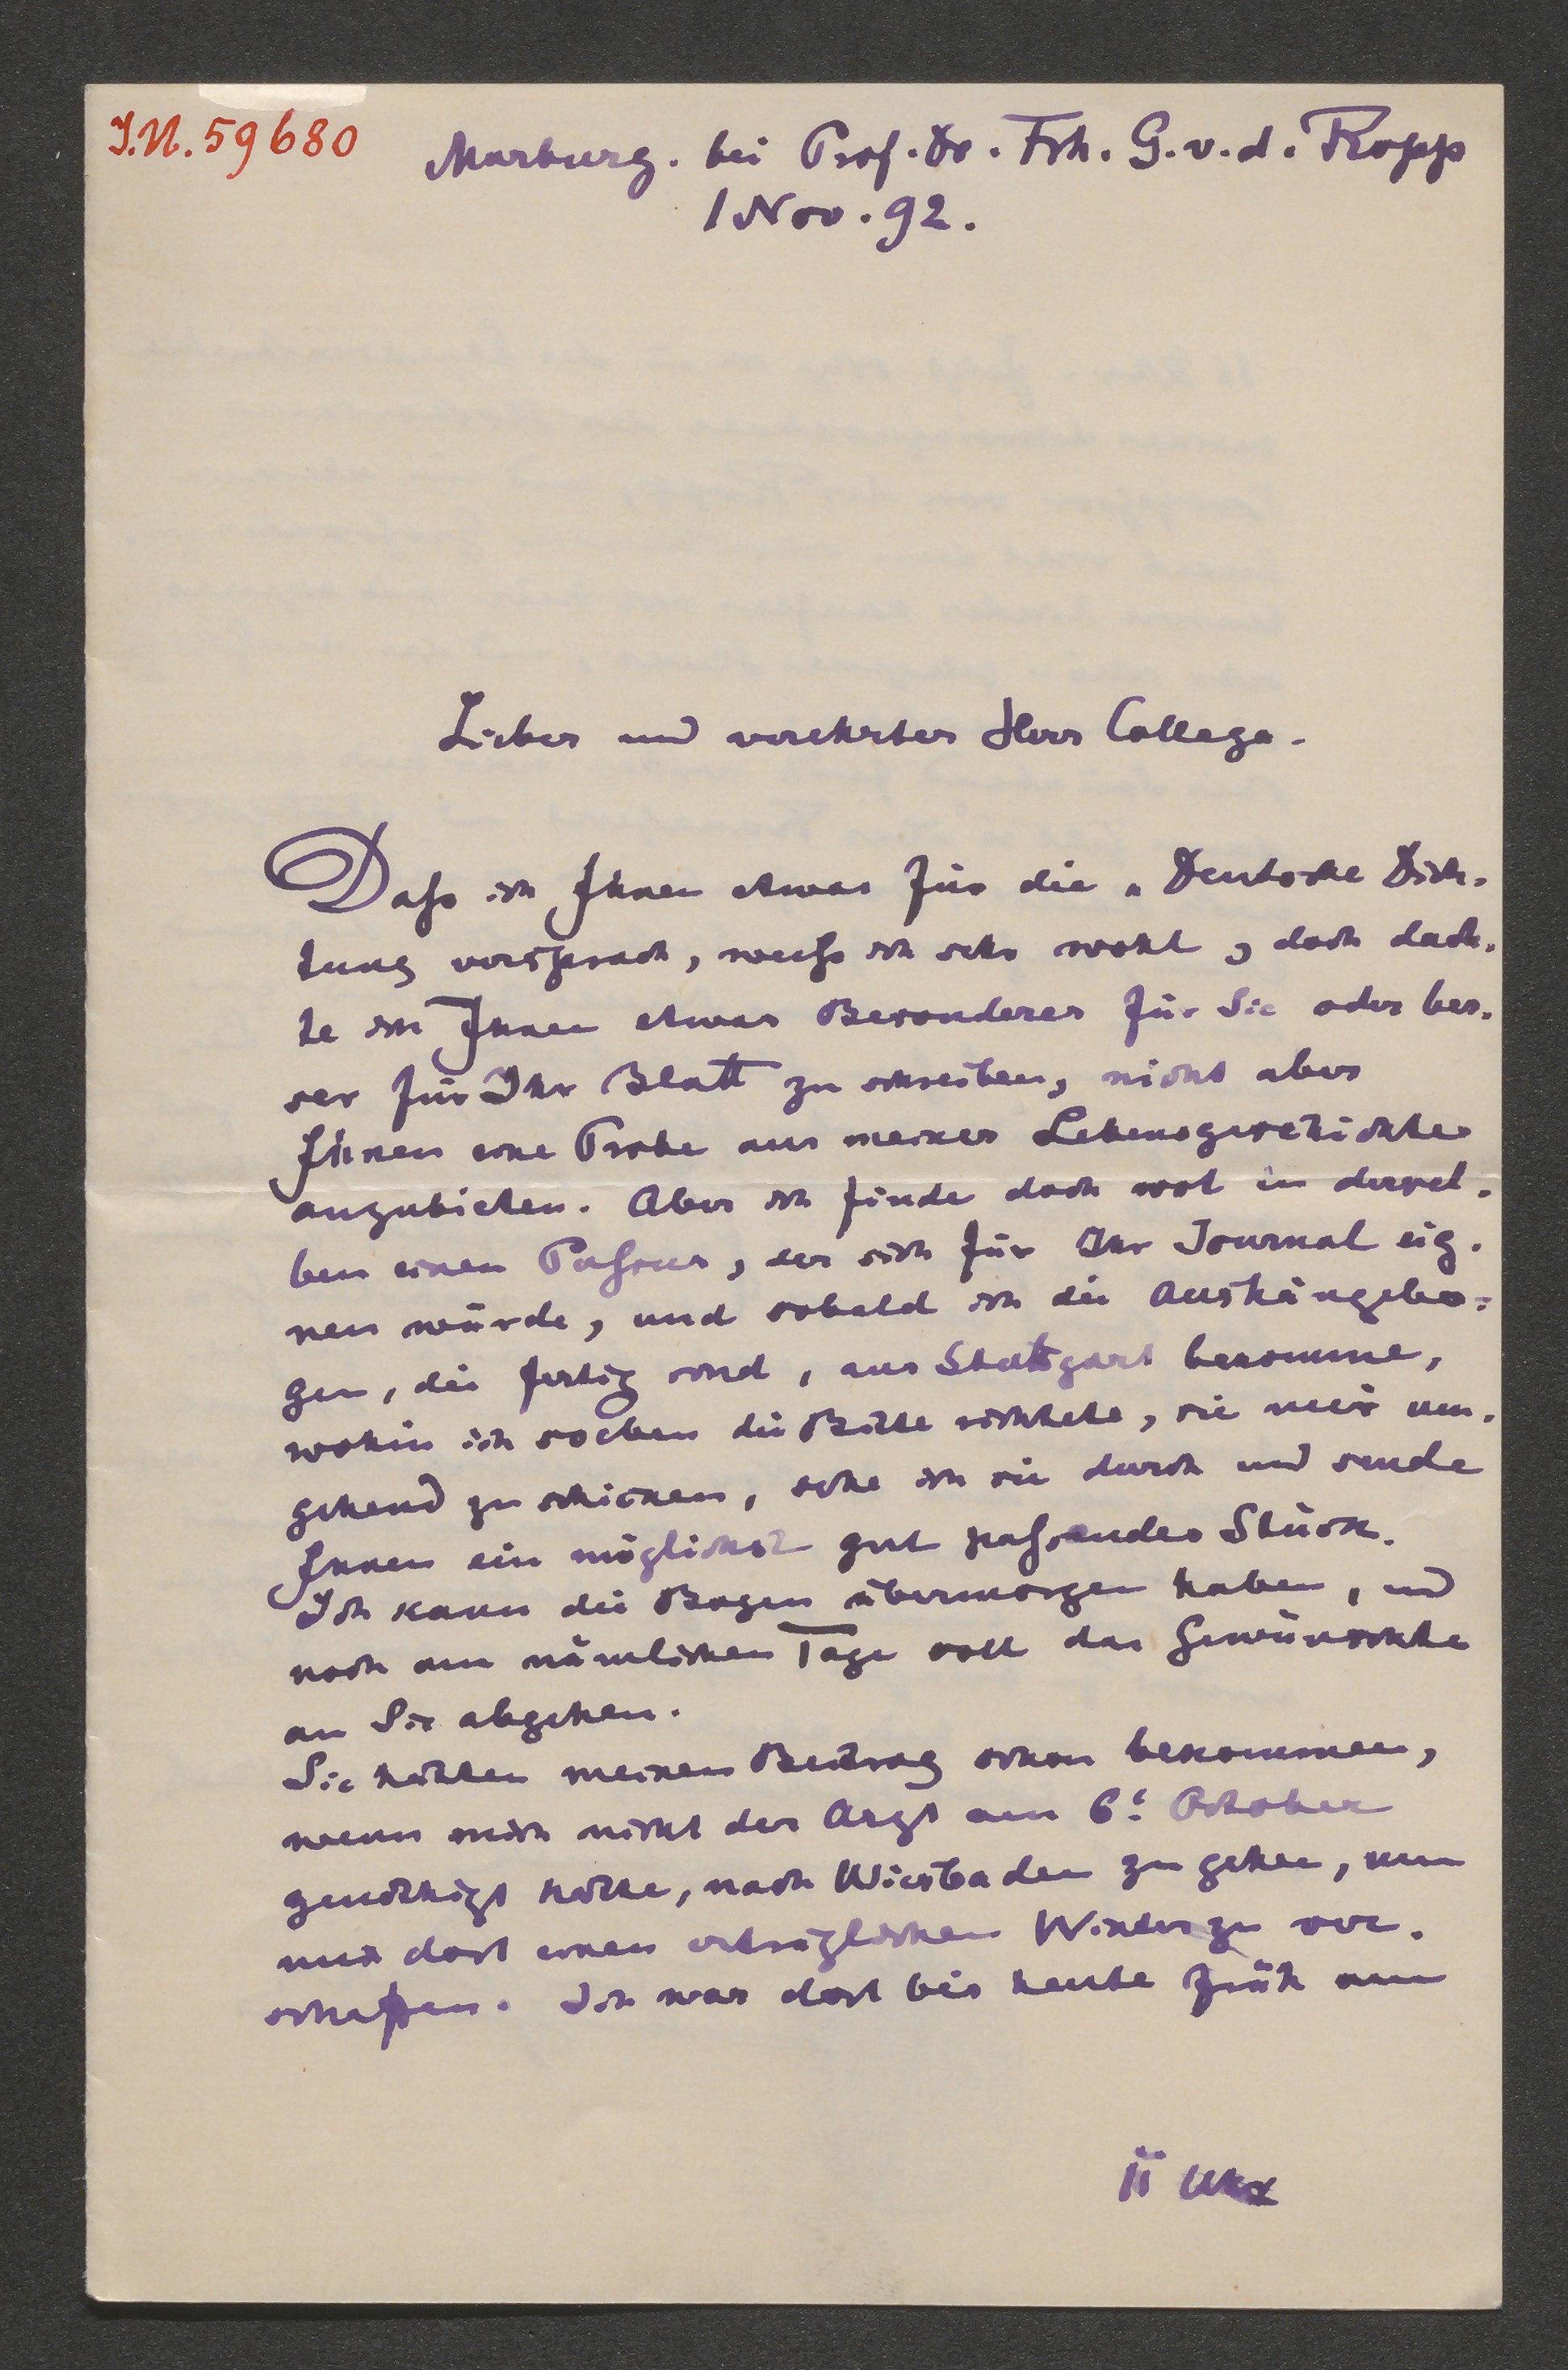 I.N. 59680
Marburg. bei Prof. Dr. Frh. G. v. d. Ropp
1 Nov. 92.
Lieber und verehrter Herr College.
Dafs ich Ihnen etwas für die „Deutsche Dich-
tung versprach, weifs ich sehr wohl, doch dach-
te ich Ihnen etwas Besonderes für Sie oder bes-
ser für Ihr Blatt zu schreiben, nicht aber
Ihnen eine Probe aus meiner Lebensgeschichte
anzubieten. Aber ich finde doch wol in dersel-
ben einen Pafsus, der sich für Ihr Journal eig-
nen würde, und sobald ich die Aushängebo-
gen, die fertig sind, aus Stuttgart bekomme,
wohin ich soeben die Bitte richtete, sie mir um-
gehend zu schicken, sehe ich sie durch und sende
Ihnen ein möglichst gut pafsendes Stück.
Ich kann die Bogen übermorgen haben, und
noch am nämlichen Tage soll das Gewünschte
an Sie abgehen.
Sie hätten meinen Beitrag schon bekommen,
wenn mich nicht der Arzt am 6t October
genöthigt hätte, nach Wiesbaden zu gehen, um
mir dort einen erträglichen Winter zu ver-
schaffen. Ich war dort bis heute früh am